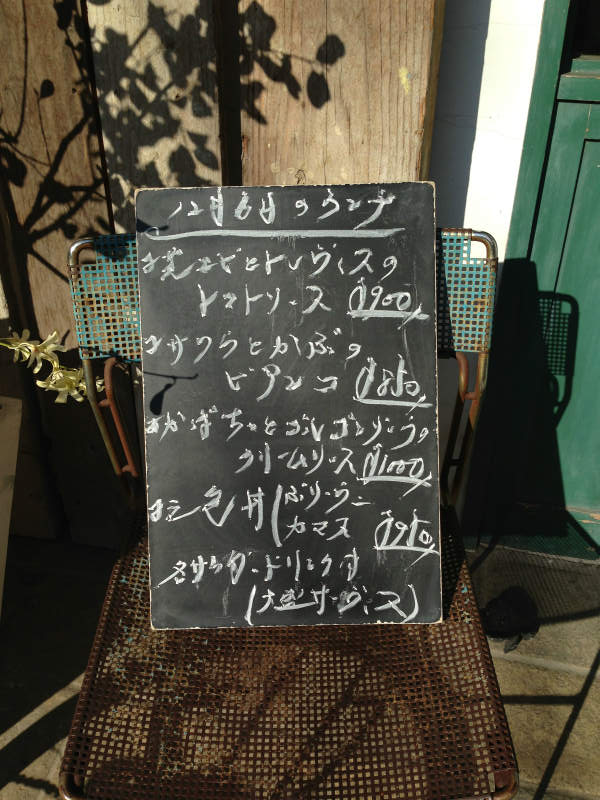 12月6日のランチ
海老とトレヴィスの
トマトソース ¥900
サワラとかぶの
ビアンコ ¥850
かぼちゃとゴルゴンゾーラの
クリームソース ¥1000
二色丼
カマス ¥950
各サラダ・ドリンク付
(大盛サービス)